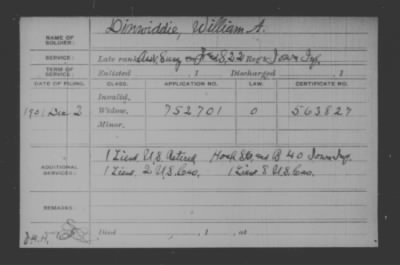 NAME OF SOLDIER: Dinwiddie, William A.
SERVICE: Late rank Asst Surg F&S, 22 Reg't Iowa Inf.
TERM OF SERVICE: Enlisted , 1 Discharged , 1
DATE OF FILING. CLASS. APPLICATION NO. LAW. CERTIFICATE NO.
Invalid,
1901 Dec 2 Widow, 752701 O 563827
Minor,
ADDITIONAL SERVICES: 1 Lieut. U.S. Retired Hosp. Std, and B 40 Iowa Inf.
1 Lieut. 2" U.S. Cav. 1 Lieut. 5 U.S. Cav.
REMARKS:
Died , 1 , at